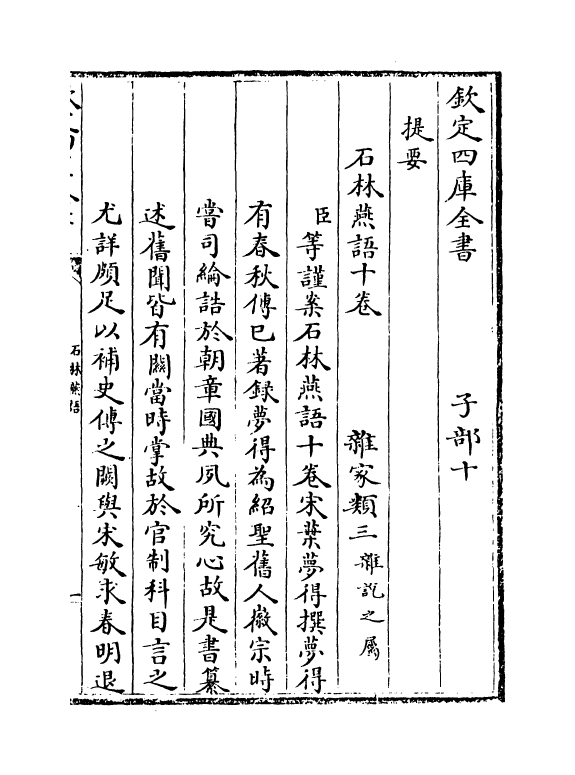 欽定四庫全書　子部十
提要
石林燕語十卷　雜家類三雜說之屬
臣等謹案石林燕語十卷宋葉夢得撰夢得
有春秋傳已著録夢得為紹聖舊人徽宗時
嘗司綸誥於朝章國典夙所究心故是書纂
述舊聞皆有關當時掌故於官制科目言之
尤詳頗足以補史傳之闕與宋敏求春明退
石林燕語